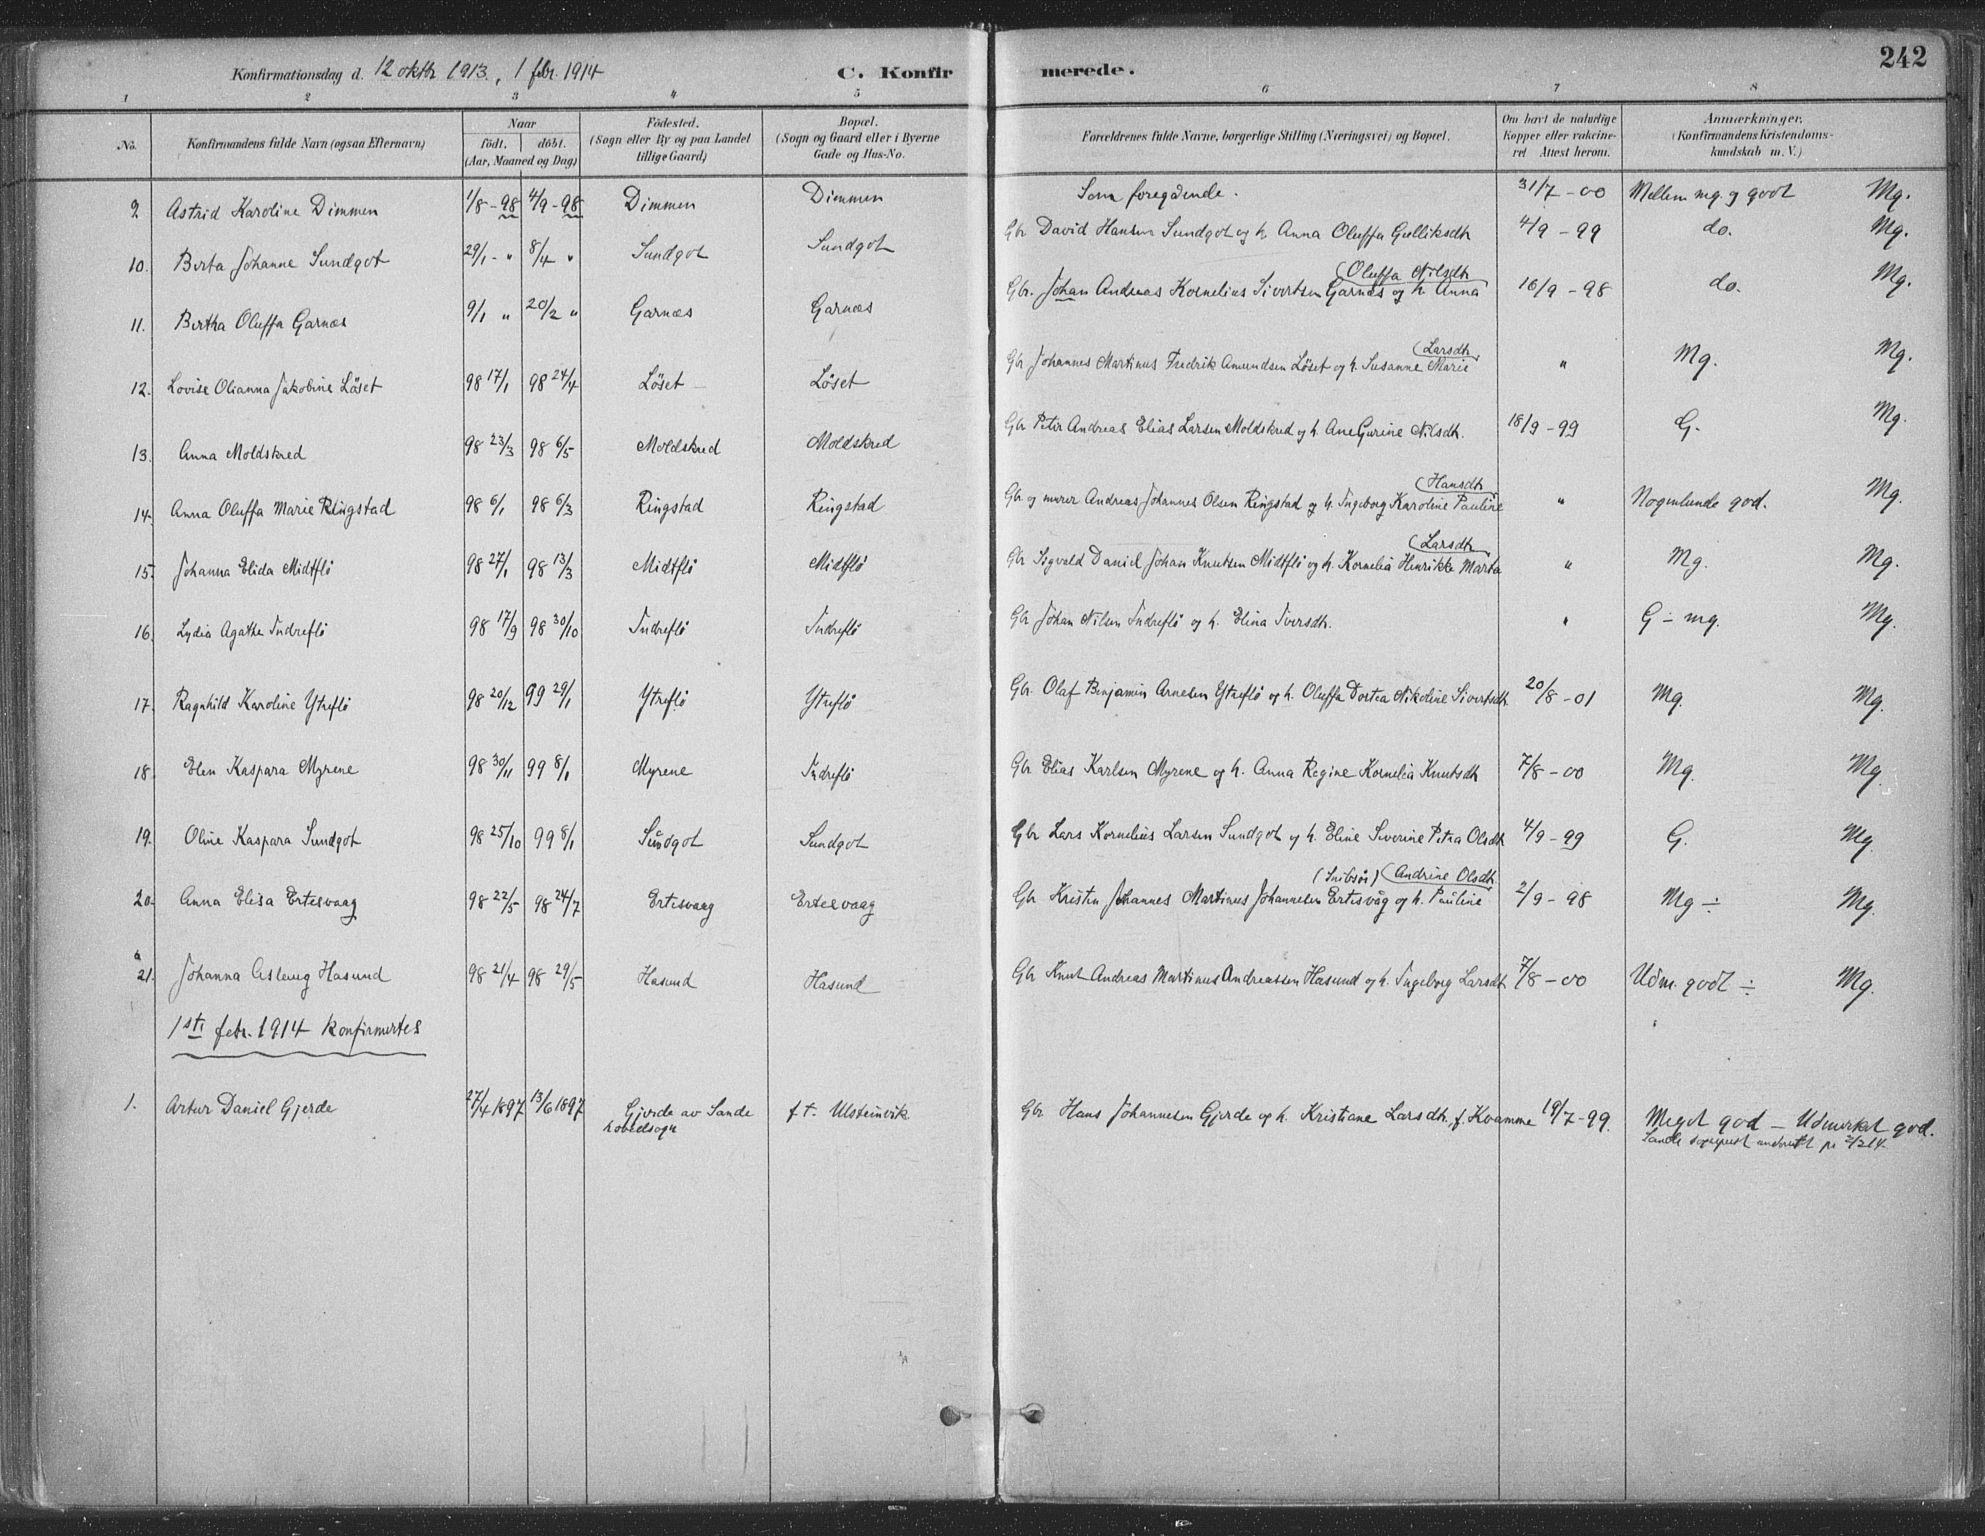 242
Konfirmationsdag d. 12 oktbr 1913, 1 febr. 1914 C. Konfirmerede.
1 2 3 4 5 6 7 8
No. Konfirmandens fulde Navn (ogsaa Efternavn) Naar födt. döbt. (Aar, Maaned og Dag) Födested. (Sogn eller By og paa Landet tillige Gaard) Bopæl. (Sogn og Gaard eller i Byerne Gade og Hus-No. Forældrenes fulde Navne, borgerlige Stilling (Næringsvei) og Bopæl. Om havt de naturlige Kopper eller vakcineret Attest herom. Anmærkninger. (Konfirmandens Kristendomskundskab m. V.)
9. Astrid Karoline Dimmen 1/8 - 98 4/9 - 98 Dimmen Dimmen Som foregående. 31/7 - 00 Mellem mg. og godt Mg.
10. Berta Johanne Sundgot 29/1 - " 8/4 " Sundgot Sundgot Gbr David Hansen Sundgot og h. Anna Oluffa Gulliksdtr 4/9 - 99 do. Mg.
11. Bertha Oluffa Garnæs 9/1 " 20/2 " Garnæs Garnæs Gbr. Johan Andreas Kornelius Sivertsen Garnæs og h. Anna (Oluffa Nilsdtr 16/9 - 98 do. Mg.
12. Lovise Olianna Jakobine Löset 98 17/1 98 24/4 Löset Löset Gbr Johannes Martinus Fredrik Amundsen Löset og h. Susanne Marie (Larsdtr " Mg. Mg.
13. Anna Moldskred 98 23/3 98 6/5 Moldskred Moldskred Gbr Peter Andreas Elias Larsen Moldskred og h. Ane Gurine Nilsdtr. 18/9 - 99 G. Mg.
14. Anna Oluffa Marie Ringstad 98 6/1 98 6/3 Ringstad Ringstad Gbr. og murer Andreas Johannes Olsen Ringstad og h. Ingeborg Karoline Pauline (Hansdtr " Nogenlunde god. Mg.
15. Johanna Elida Midtflö 98 27/1 98 13/3 Midtflö Midtflö Gbr Sigvald Daniel Johan Knutsen Midtflö og h. Kornelia Henrikke Marta (Larsdtr " Mg. Mg.
16. Lydia Agathe Indreflö 98 17/9 98 30/10 Indreflö Indreflö Gbr Johan Nilsen Indreflö og h. Elina Iversdtr. " G - mg. Mg.
17. Ragnhild Karoline Ytreflö 98 20/12 99 29/1 Ytreflö Ytreflö Gbr. Olaf Benjamin Arnesen Ytreflö og h. Oluffa Dortea Nikoline Sivertsdtr. 20/8 - 01 Mg. Mg.
18. Elen Kaspara Myrene 98 30/11 99 8/1 Myrene Indreflö Gbr Elias Karlsen Myrene og h. Anna Regine Kornelia Knutsdtr 7/8 - 00 Mg. Mg.
19. Oline Kaspara Sundgot 98 25/10 99 8/1 Sundgot Sundgot Gbr Lars Kornelius Larsen Sundgot og h. Eline Siverine Petra Olsdtr 4/9 - 99 G. Mg.
20. Anna Elisa Ertesvaag 98 22/5 98 24/7 Ertesvaag Ertesvaag Gbr Kristen Johannes Martinus Johannesen Ertesvåg og h. Pauline (Andrine Olsdtr. 2/9 - 98 Mg ÷ Mg.
21. Johanna Aslaug Hasund 98 21/4 98 29/5 Hasund Hasund Gbr Knut Andreas Martinus Andreassen Hasund og h. Ingeborg Larsdtr 7/8 - 00 Udm. godt ÷ Mg.
1ste febr. 1914 konfirmertes
1. Artur Daniel Gjerde 27/4 1897 13/6 1897 Gjerde av Sande hovedsogn f.t. Ulsteinvik Gbr Hans Johannesen Gjerde og h. Kristiane Larsdtr. f. Kvamme 19/7 - 99. Meget god - Udmerket god.
Sande